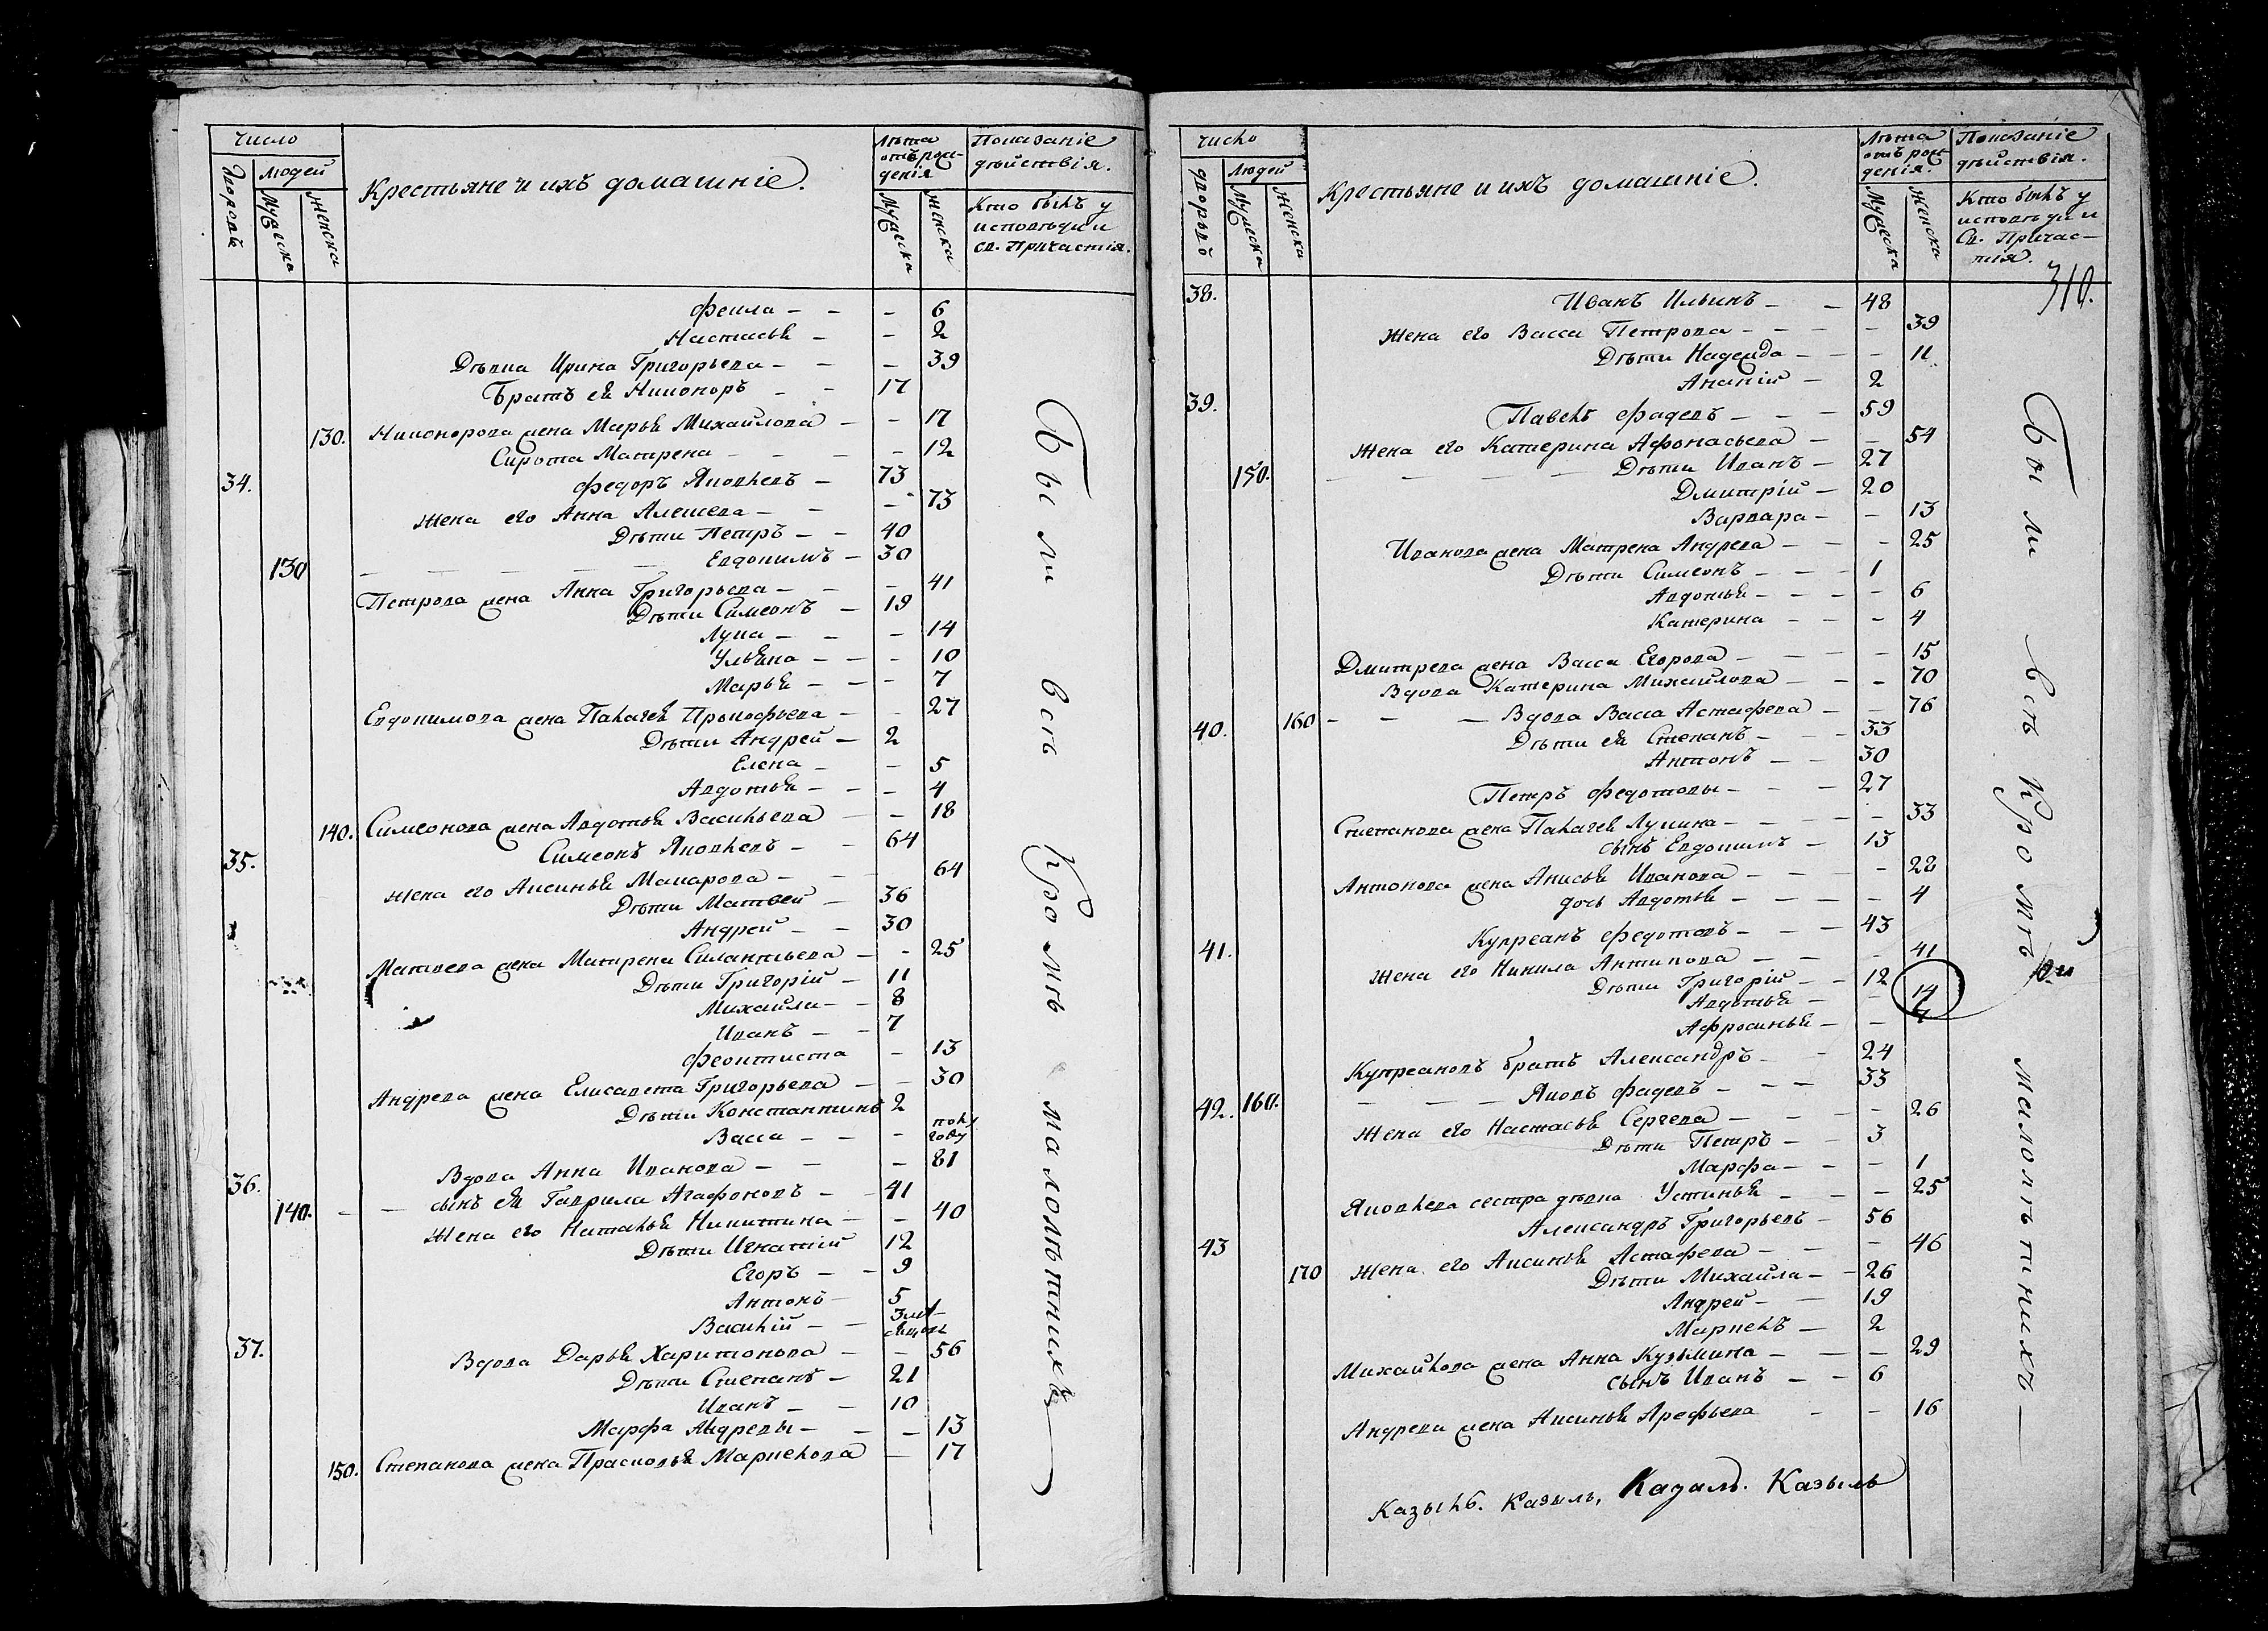 число
дворовъ
людей
мужеска
женска
Крестьяне и ихъ домашніе.
Лѣта отъ рож-
денія
мужеска
женска
Показаніе
дѣйствія.
Кто былъ у
исповѣди и
св. Причастія.
Фекла – – – 6
Настасья – – 2
Дѣвка Ирина Григорьева – – – 39
Братъ ея Никоноръ – – 17
130. Никонорова жена Марья Михайлова – – 17
Сирота Матрена – – – – 12
34. Федоръ Яковлевъ – 73
жена его Анна Алексева – – – 73
Дѣти Петръ – – 40
130 – – – – – Евдокимъ – 30
Петрова жена Анна Григорьева – – – 41
Дѣти Симеонъ – 19
Лука – – – 14
Ульяна – – – 10
Марья – – – 7
Евдокимова жена Палагея Прокофьева – – 27
Дѣти Андрей – 2
Елена – – 5
Авдотья – – – 4
140. Симеонова жена Авдотья Васильева – – 18
35. Симеонъ Яковлевъ – – 64
жена его Аксинья Макарова – – 64
Дѣти Матвей – 36
Андрей – – 30
Матвева жена Матрена Силантьева – – 25
Дѣти Григорій – 11
Михайла – – 8
Иванъ – – 7
Феоктиста – 13
Андрева жена Елисавета Григорьева – – 30
Дѣти Константинъ 2
Васса – – –
полу
году
Вдова Анна Иванова – – – 81
36. 140. – – сынъ ея Гаврила Агафоновъ – – 41
жена его Наталья Никитина – – 40
Дѣти Игнатій 12
Егоръ – – 9
Антонъ – 5
Василій – –
37. Вдова Дарья Харитонова – – 56
Дѣти Степанъ – 21
Иванъ – – 10
Марфа Андревы – – – 13
150. Степанова жена Прасковья Маркелова – 17
Были всѣ кромѣ малолѣтнихъ
число
дворовъ
людей
мужеска
женска
Крестьяне и ихъ домашніе.
Лѣта
отъ рож
денія.
мужеска
женска
Показаніе
дѣйствія.
Кто былъ у
исповѣди и
Св. Причас–
тія.
310.
38. Иванъ Ильинъ – – 48
жена его Васса Петрова – – – – 39
Дѣти Надежда – – – 11
Ананій – 2
39. Павелъ Фадевъ – – – 59
жена его Катерина Афонасьева – – 54
150. – – – – Дѣти Иванъ – 27
Дмитрій – 20
Варвара – – 13
Иванова жена Матрена Андрева – – – 25
Дѣти Симеонъ – – – 1
Авдотья – – – – 6
Катерина – – – 4
Дмитрева жена Васса Егорова – – – – 15
Вдова Катерина Михайлова – – – 70
40. 160 – – – Вдова Васса Астафева – – 76
Дѣти ея Степанъ – – – 33
Антонъ – – 30
Петръ Федотовы – – – 27
Степанова жена Палагея Лукина – – – – – 33
сынъ Евдокимъ – 13
Антонова жена Анисья Иванова – – – – 28
дочь Авдотья – – – – 4
41. Купреанъ Федотовъ – – – 43
жена его Нинила Антипова – – – – 41
Дѣти Григорій – – 12
Авдотья – – 14
Афросинья – – 7
Купреановъ братъ Александръ – – 24
42. 160. – – – Яковъ Фадевъ – – – 33
жена его Настасья Сергева – – – – 26
Дѣти Петръ – – 3
Марфа – – – 1
Яковлева сестра дѣвка Устинья – – – 25
43 Александръ Григорьевъ – 56
170 жена его Аксинья Астафева – – – 46
Дѣти Михайла – – 26
Андрей – – 19
Маркелъ – 2
Михайлова жена Анна Кузьмина – – – 29
сынъ Иванъ – – 6
Андрева жена Аксинья Арефьева – – 16
Были всѣ кромѣ малолѣтнихъ –
Казылъ. Казылъ, Казалъ. Казылъ